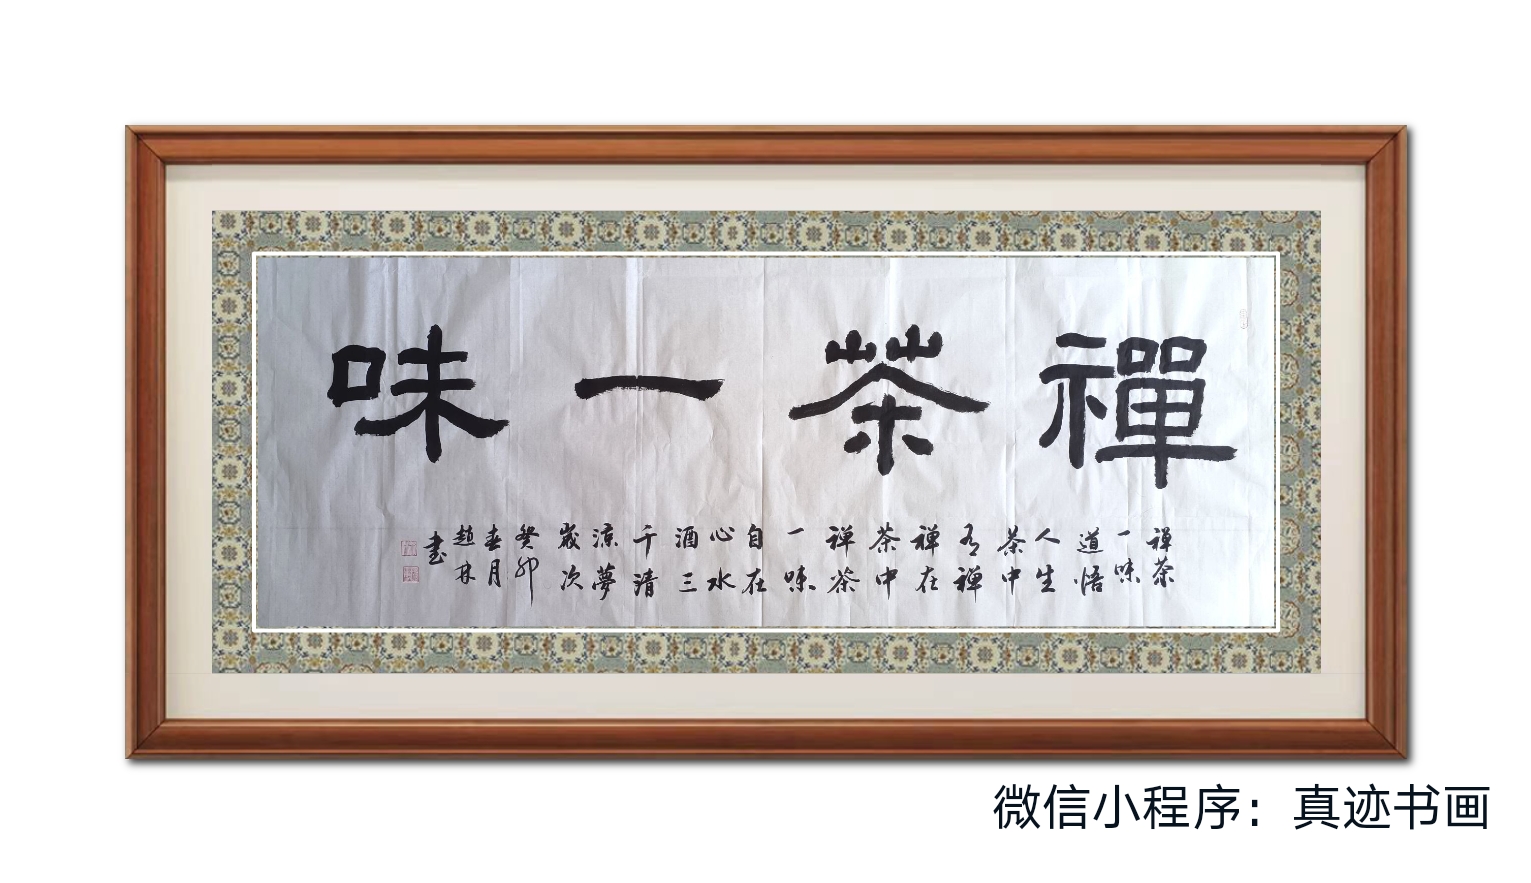 禪茶一味
禅茶
一味
道悟
人生
茶中
有禅
禅在
茶中
禅茶
一味
自在
心水
酒三
千清
涼夢
歲次
癸卯
春月
趙林
書
微信小程序：真迹书画